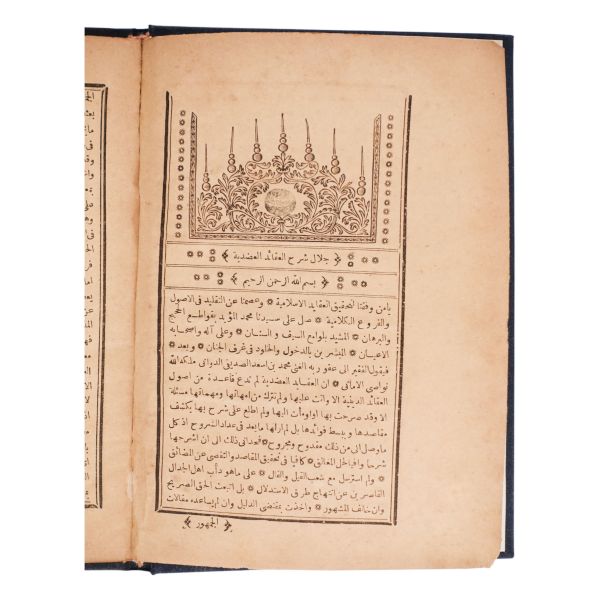 ﴿ جلال شرح العقائد العضدية ﴾
﴿ بسم الله الرحمن الرحيم ﴾
يامن وفقنا لتحقيق العقايد الاسلامية ۞ وعصمنا عن التقليد فى الاصول
والفروع الكلامية ۞ صل على سيدنا محمد المؤيد بقواطع الحجج
والبرهان ۞ المشيد بلوامع السيف و السنان ۞ وعلى آله واصحابه
الاعيان ۞ المبشرين بالدخول والخلود فى غرف الجنان ۞ و بعد ۞
فيقول الفقير الى عفو ربه الغنى محمد بن اسعد الصديقى الدوانى ملكه الله
نواصى الامانى ۞ ان العقايد العضدية لم تدع قاعدة من اصول
العقائد الدينية الا واتت عليها ولم تترك من امهاتها ومهماتها مسئلة
الا وقد صرحت بها او اومأت اليها ولم اطلع على شرح بها يكشف
مقاصدها و يبسط فوائدها بل لم ارلها ما يعد فى عداد الشروح اذ كل
ما وصل الى من ذلك مقدوح ومجروح ۞ فحدانى ذلك الى ان اشرحها
شرحا وافيا بحل المعاقد ۞ كافيا فى تحقيق المقاصد والتقصى عن المضائق
۞ ولم استرسل مع شعب القيل والقال ۞ على ماهو دأب اهل الجدال
القاصرين عن انتهاج طرق الاستدلال ۞ بل اتبعت الحق الصريح
وان خالف المشهور ۞ واخذت بمقتضى الدليل وان لم يساعده مقالات
﴿ الجمهور ﴾